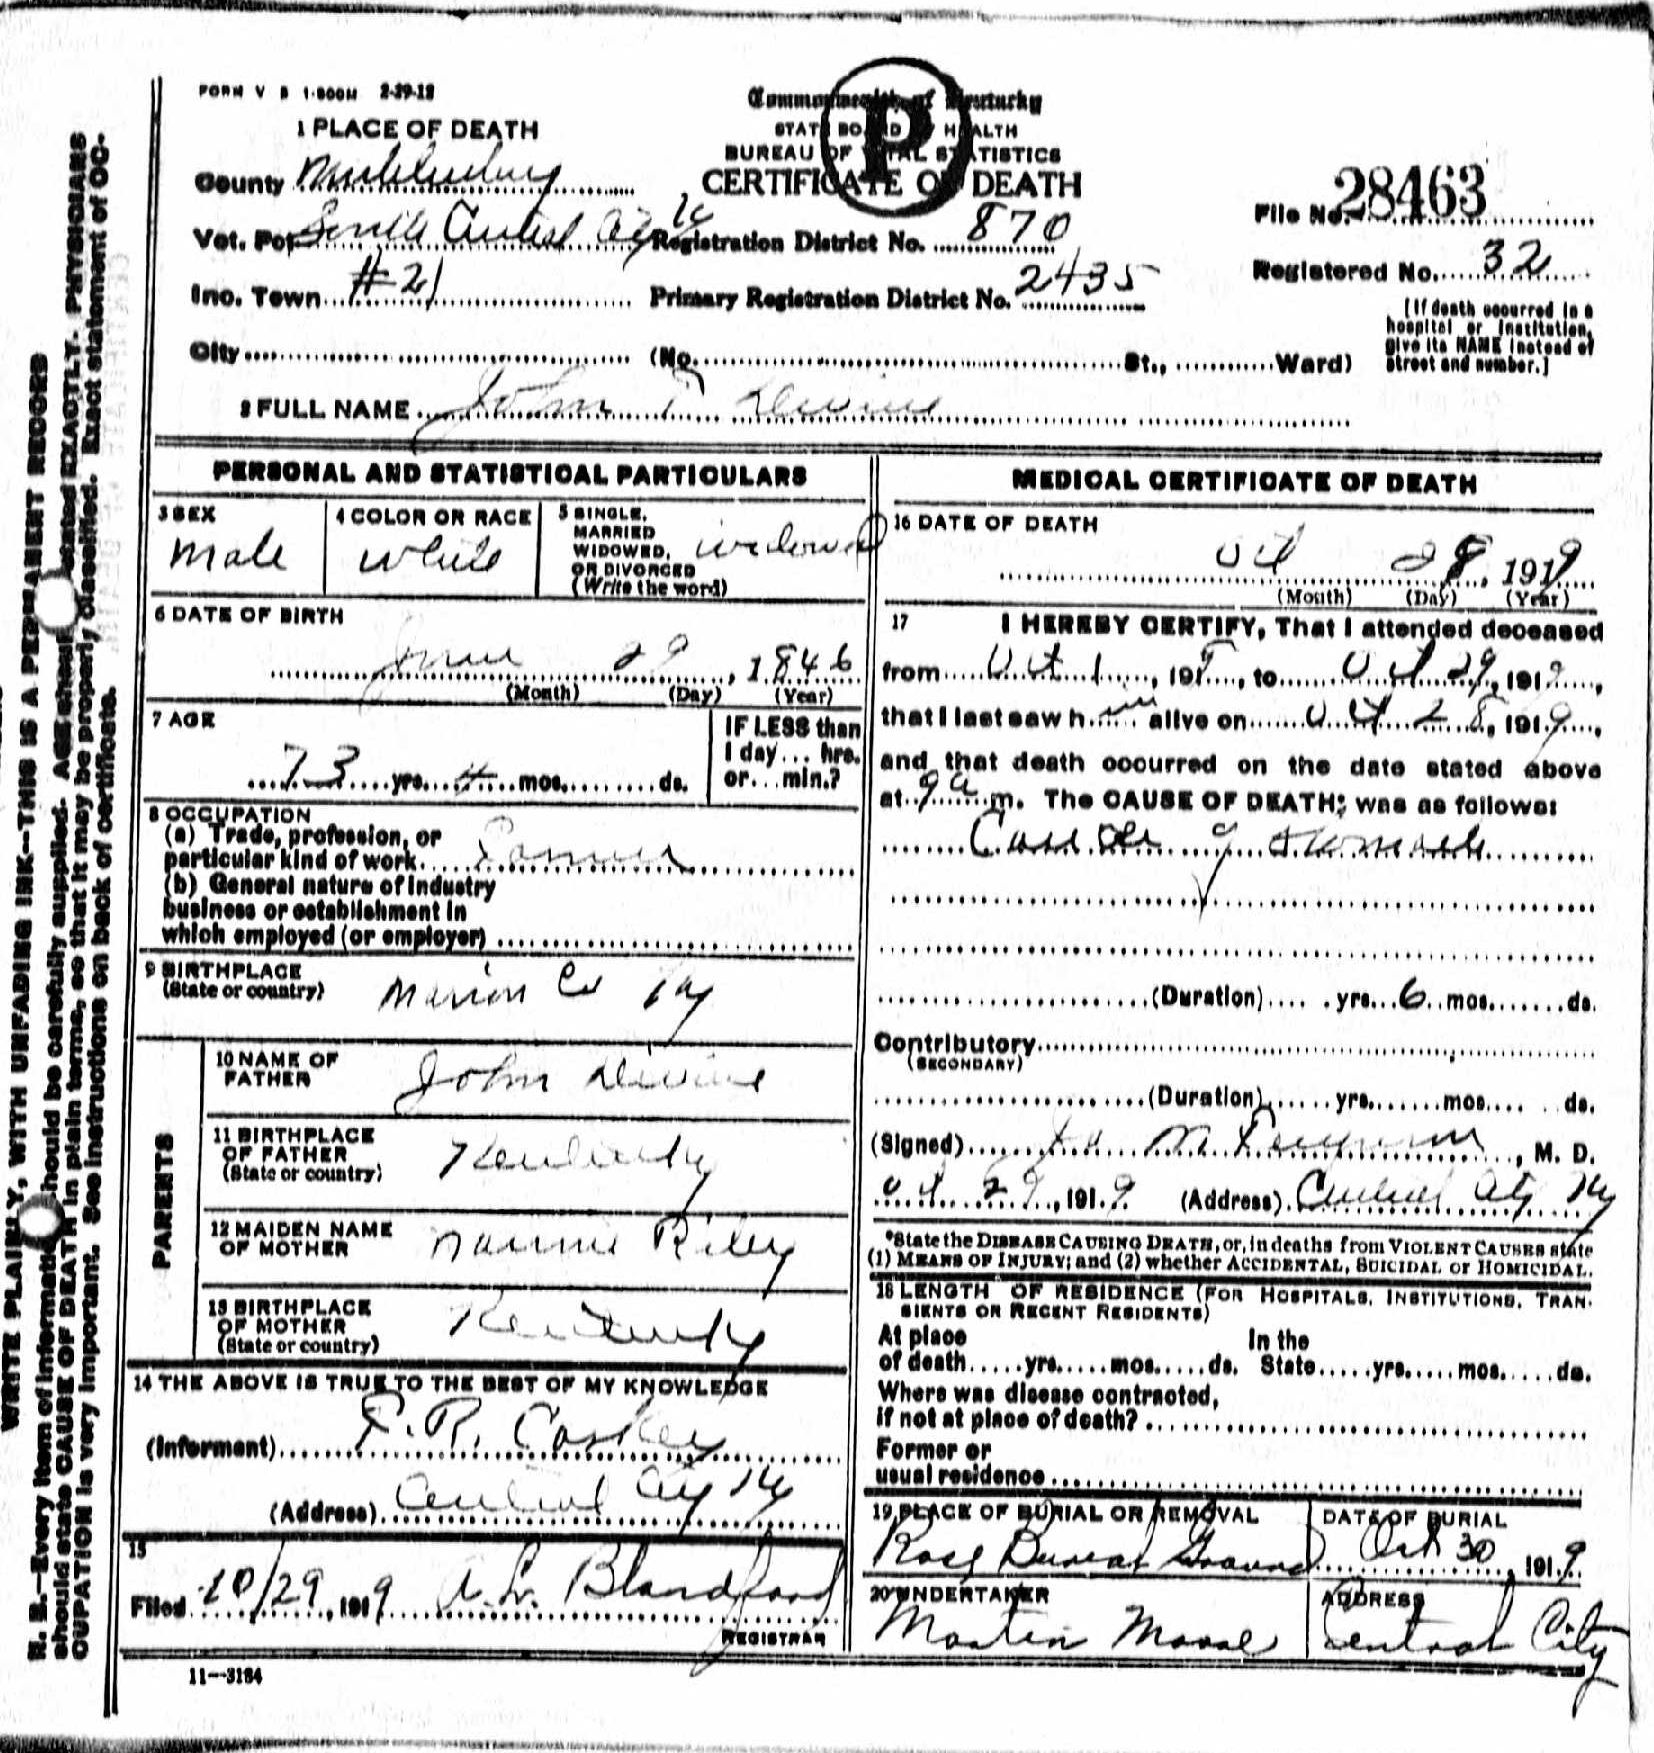 FORM V S 1-500M 2-29-12
Commonwealth of Kentucky
STATE BOARD OF HEALTH
BUREAU OF VITAL STATISTICS
CERTIFICATE OF DEATH
P
1 PLACE OF DEATH
County Muhlenburg
Vot. Pct South Central City Ky Registration District No. 870
Inc. Town #21 Primary Registration District No. 2435
City (No. St., Ward)
File No. 28463
Registered No. 32
[If death occurred in a
hospital or institution,
give its NAME instead of
street and number.]
2 FULL NAME John T Devine
PERSONAL AND STATISTICAL PARTICULARS
3 SEX
Male
4 COLOR OR RACE
White
5 SINGLE,
MARRIED
WIDOWED,
OR DIVORCED
(Write the word)
widowed
6 DATE OF BIRTH
June 29, 1846
(Month) (Day) (Year)
7 AGE
73 yrs. 4 mos. ds.
IF LESS than
1 day... hrs.
or... min.?
8 OCCUPATION
(a) Trade, profession, or
particular kind of work Farmer
(b) General nature of industry
business or establishment in
which employed (or employer)
9 BIRTHPLACE
(State or country)
Marion Co Ky
PARENTS
10 NAME OF
FATHER
John Devine
11 BIRTHPLACE
OF FATHER
(State or country)
Kentucky
12 MAIDEN NAME
OF MOTHER
Nannie Riley
13 BIRTHPLACE
OF MOTHER
(State or country)
Kentucky
14 THE ABOVE IS TRUE TO THE BEST OF MY KNOWLEDGE
(Informant) Coskey
(Address) Central City Ky
15
Filed 10/29, 1919 A. L. Blandford
REGISTRAR
11--3184
MEDICAL CERTIFICATE OF DEATH
16 DATE OF DEATH
Oct 28, 1919
(Month) (Day) (Year)
17 I HEREBY CERTIFY, That I attended deceased
from Oct 1, 191 , to Oct 29, 1919,
that I last saw him alive on Oct 28, 1919,
and that death occurred on the date stated above
at 9 a m. The CAUSE OF DEATH; was as follows:
of stomach
(Duration) yrs. 6 mos. ds.
Contributory
(SECONDARY)
(Duration) yrs. mos. ds.
(Signed) M Ferguson, M. D.
Oct 29, 1919 (Address) Central City Ky
*State the DISEASE CAUSING DEATH, or, in deaths from VIOLENT CAUSES state
(1) MEANS OF INJURY; and (2) whether ACCIDENTAL, SUICIDAL or HOMICIDAL.
18 LENGTH OF RESIDENCE (FOR HOSPITALS, INSTITUTIONS, TRAN-
SIENTS OR RECENT RESIDENTS)
At place In the
of death yrs. mos. ds. State yrs. mos. ds.
Where was disease contracted,
if not at place of death?
Former or
usual residence
19 PLACE OF BURIAL OR REMOVAL
Burial Ground
DATE OF BURIAL
Oct 30, 1919
20 UNDERTAKER
Martin Moore
ADDRESS
Central City
WRITE PLAINLY, WITH UNFADING INK--THIS IS A PERMANENT RECORD
N. B.--Every item of information should be carefully supplied. AGE should stated EXACTLY. PHYSICIANS
should state CAUSE OF DEATH in plain terms, so that it may be properly classified. Exact statement of OC-
CUPATION is very important. See instructions on back of certificate.